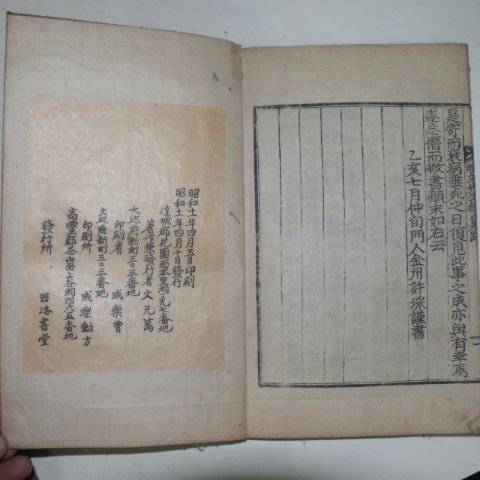 是寄而衰病垂死之日復見此事之成亦與有幸焉
遂忘僭而敬書顚末如右云
乙亥七月仲旬門人金州許埰謹書
昭和十一年四月五日印刷
昭和十一年四月十日發行
達城郡花園面本里洞
著作兼發行者 文元萬
大邱府新町三〇三番地
印刷者 成樂曾
大邱府新町三〇三番地
印刷所 成樂動方
高靈郡茶山面上谷洞四六五番地
發行所 西洛書堂